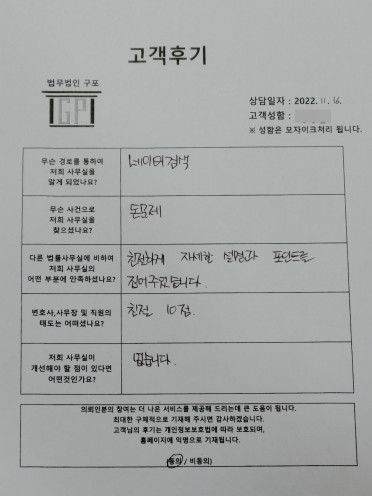 고객후기
법무법인 구포
GP
상담일자 : 2022. 11. 16.
고객성함 :
※ 성함은 모자이크처리 됩니다.
무슨 경로를 통하여
저희 사무실을
알게 되었나요?
네이버검색
무슨 사건으로
저희 사무실을
찾으셨나요?
돈문제
다른 법률사무실에 비하여
저희 사무실의
어떤 부분에 만족하셨나요?
친절하게 자세한 설명과 포인트를
집어주셨습니다.
변호사,사무장 및 직원의
태도는 어떠셨나요?
친절 10점
저희 사무실이
개선해야 할 점이 있다면
어떤것인가요?
없습니다.
의뢰인분의 참여는 더 나은 서비스를 제공해 드리는데 큰 도움이 됩니다.
최대한 구체적으로 기재해 주시면 감사하겠습니다.
고객님의 후기는 개인정보보호법에 따라 보호되며,
홈페이지에 익명으로 기재됩니다.
(동의 / 비동의)